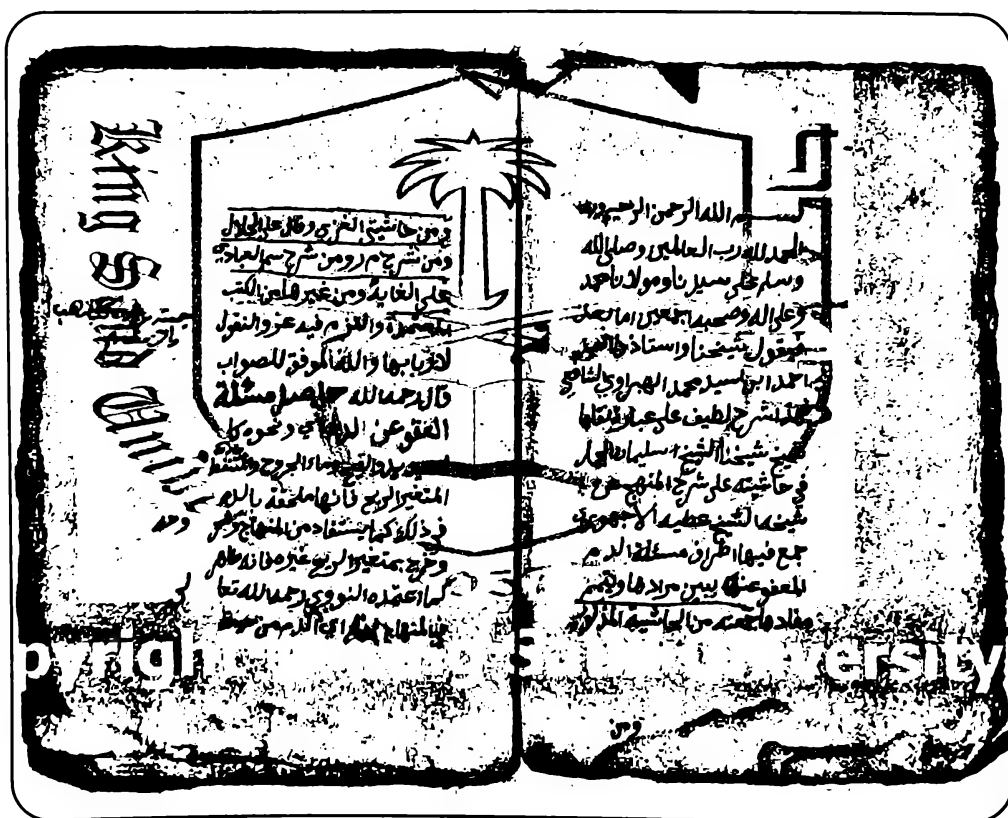 بسم الله الرحمن الرحيم وبه
الحمد لله رب العالمين وصلى الله
وسلم على سيدنا ومولانا محمد
وعلى اله وصحبه اجمعين اما بعد
فيقول شيخنا واستاذنا
احمد ابن السيد محمد الهبراوي الشافعي
هذا شرح لطيف على عبارة نقلها
شيخنا الشيخ سليمان الجمل
في حاشيته على شرح المنهج عن
شيخه الشيخ عطيه الاجهوري
جمع فيها اطراف مسئلة الدم
المعفو عنه يبين مرادها ويتمم
مفادها جمعته من الحاشيه
ومن
ومن حاشيتي الغزي و على الجلال
ومن شرح م ر ومن شرح سم العبادي
على الغاية ومن غيرها من الكتب
المعتمدة والتزم فيه عزو النقول
لاربابها والله الموفق للصواب
قال رحمه الله حاصل مسئلة
العفو عن الدماء ونحوه كا
والقيح وماء الجروح
المتغير الريح فانها ملحقة بالدم
في ذلك كما يستفاد من المنهاج
وخرج بمتغير الريح غيره فانه طاهر
كما اعتمده النووي رحمه الله تعا
في المنهاج اي الدم من
وحد
King Saud University
Copyright
University